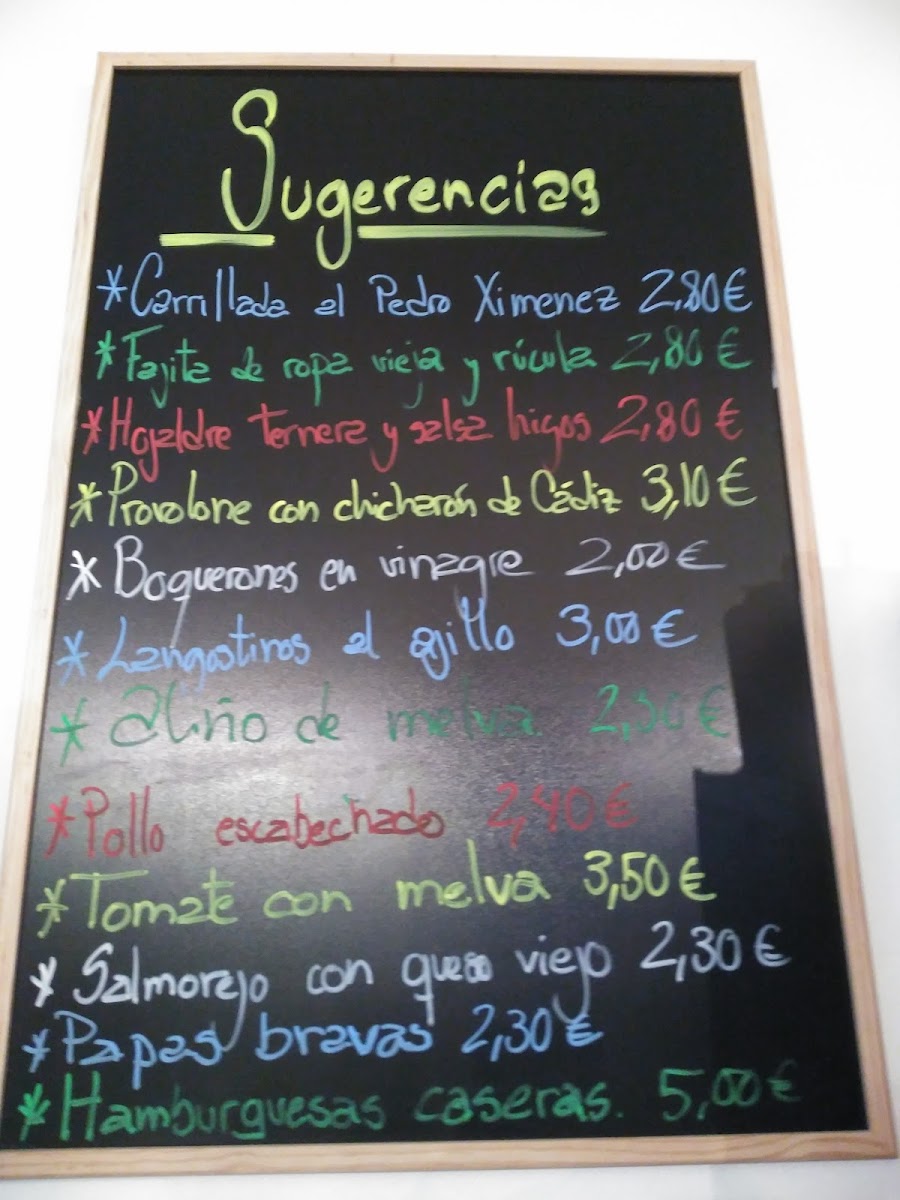 Sugerencias
*Carrillada al Pedro Ximenez 2,80€
*Fajita de ropa vieja y rúcula 2,80€
*Hojaldre ternera y salsa higos 2,80€
*Provolone con chicharón de Cádiz 3,10€
*Boquerones en vinagre 2,00€
*Langostinos al ajillo 3,00€
*Aliño de melva. 2,30€
*Pollo escabechado 2,40€
*Tomate con melva 3,50€
*Salmorejo con queso viejo 2,30€
*Papas bravas 2,30€
*Hamburguesas caseras. 5,00€